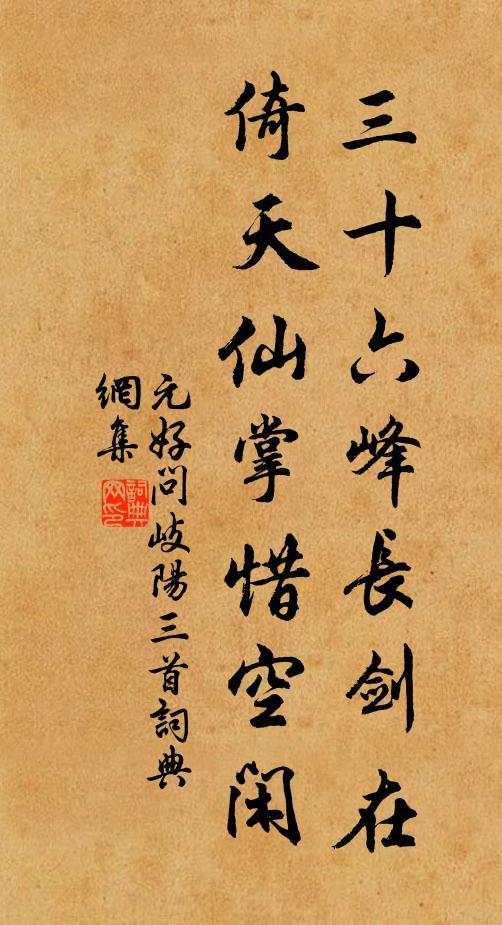 三十六峰長劍在
倚天仙掌惜空閑
元好問岐陽三首詞典
網集
詞典
网印